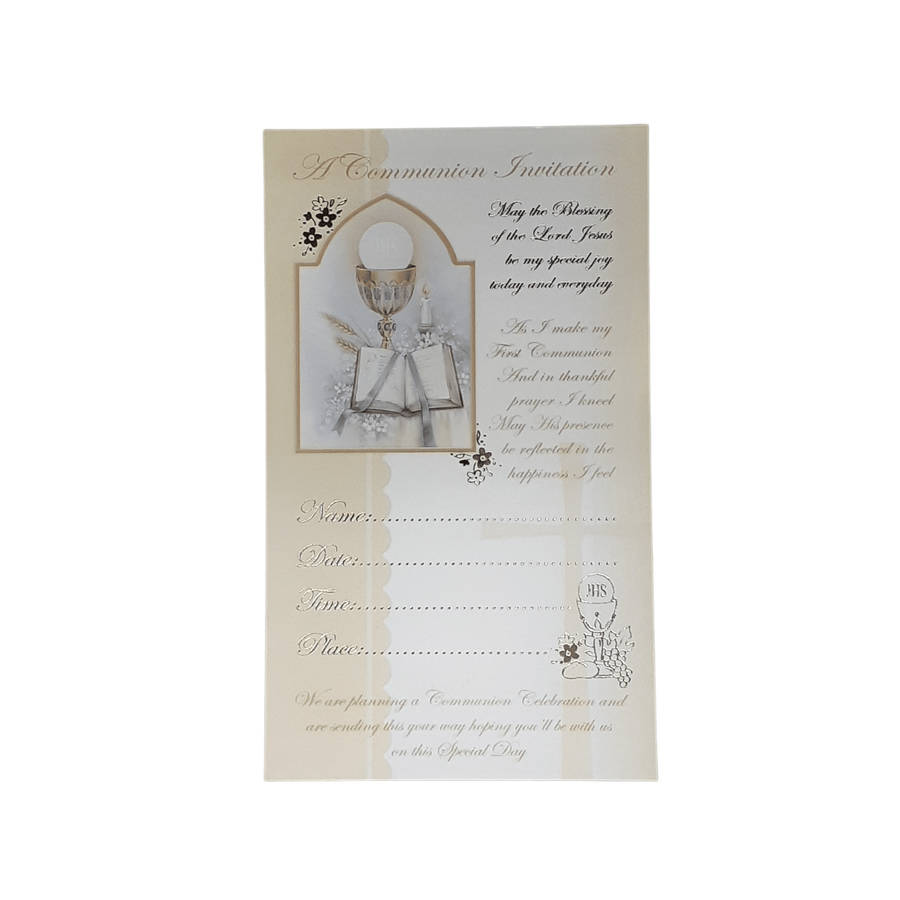 A Communion Invitation
May the Blessing
of the Lord Jesus
be my special joy
today and everyday
As I make my
First Communion
And in thankful
prayer I kneel
May His presence
be reflected in the
happiness I feel
IHS
Name:..............................
Date:..............................
Time:..............................
JHS
Place:..............................
We are planning a Communion Celebration and
are sending this your way hoping you'll be with us
on this Special Day